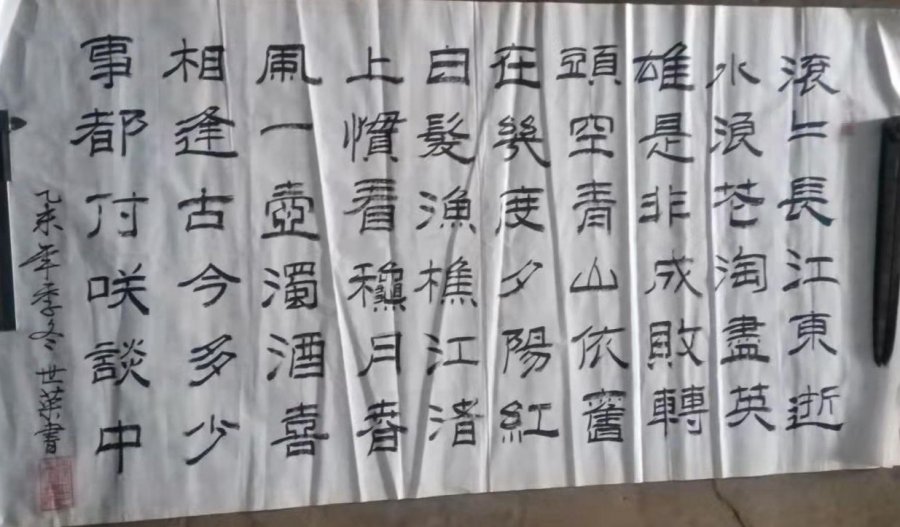 滚〻長江東逝
水浪花淘盡英
雄是非成敗轉
頭空青山依舊
在幾度夕陽紅
白髮漁樵江渚
上慣看龝月春
風一壺濁酒喜
相逢古今多少
事都付咲談中
乙未年季冬 世英書